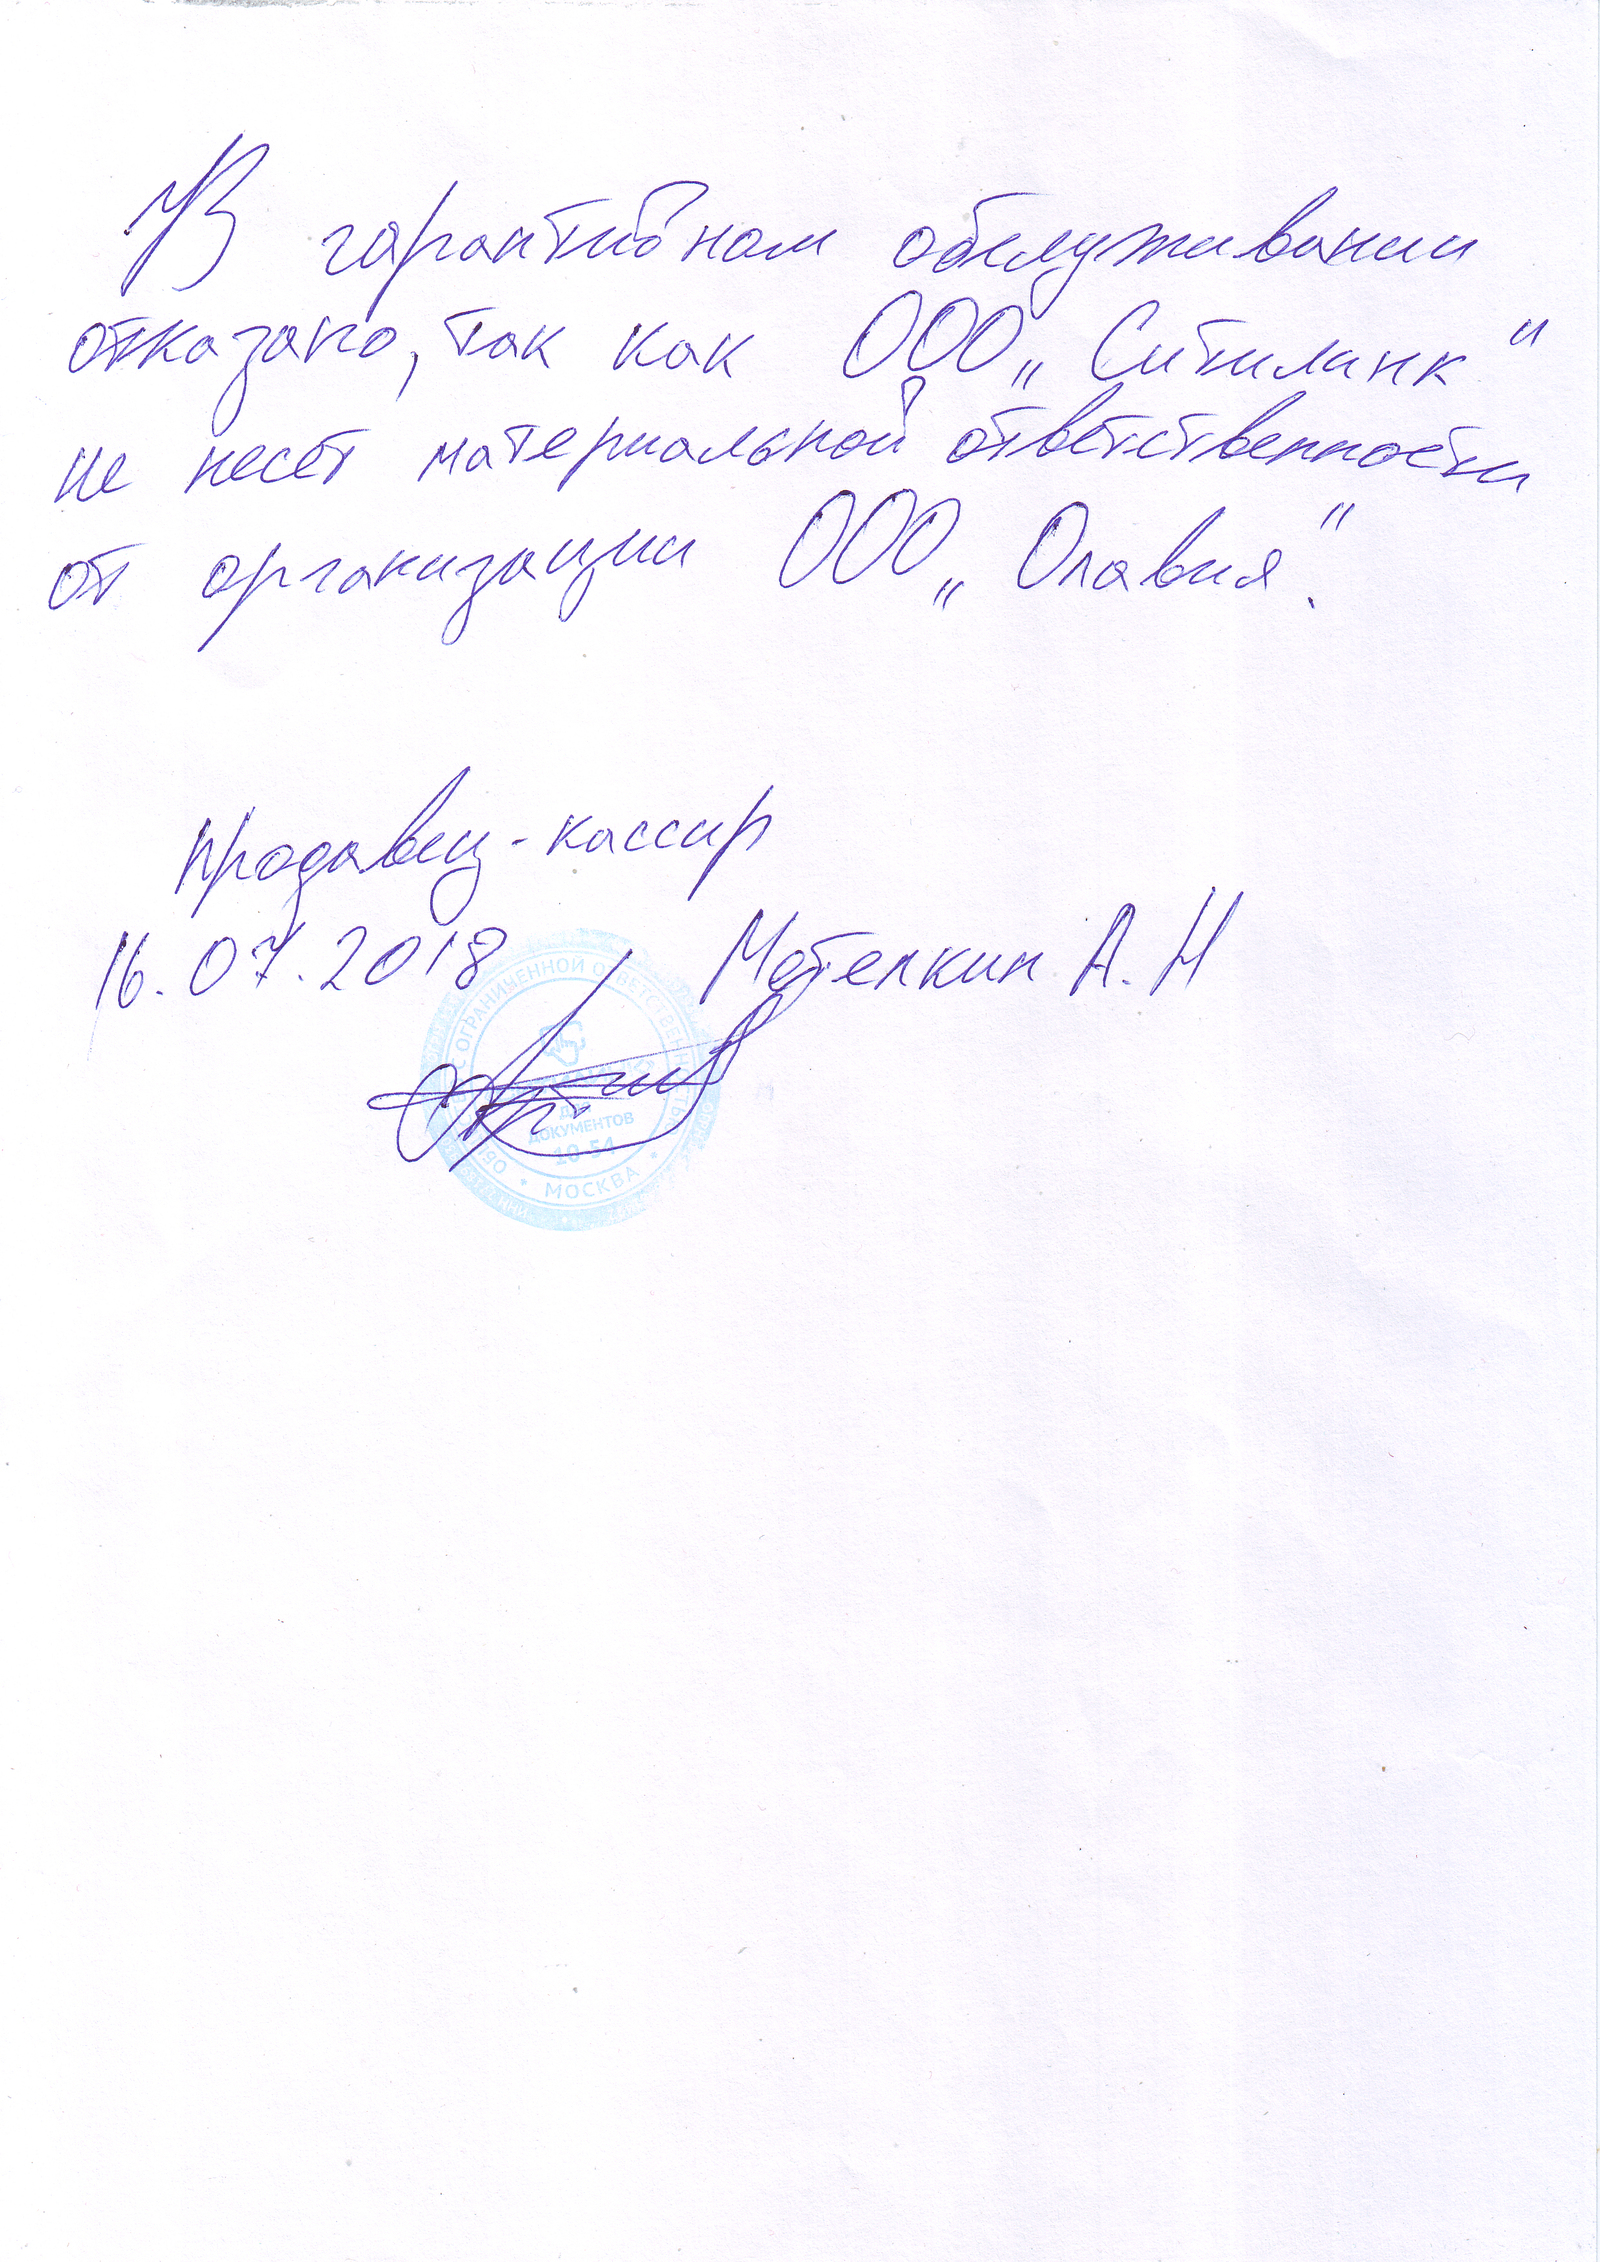 В гарантийном обслуживании
отказано, так как ООО „Ситилинк"
не несёт материальной ответственности
от организации ООО „Олавия".
продавец-кассир
16.07.2018 Мотелкин А.Н
С ОГРАНИЧЕННОЙ ОТВЕТСТВЕННОСТЬЮ
ДЛЯ
ДОКУМЕНТОВ
10-54
• МОСКВА •